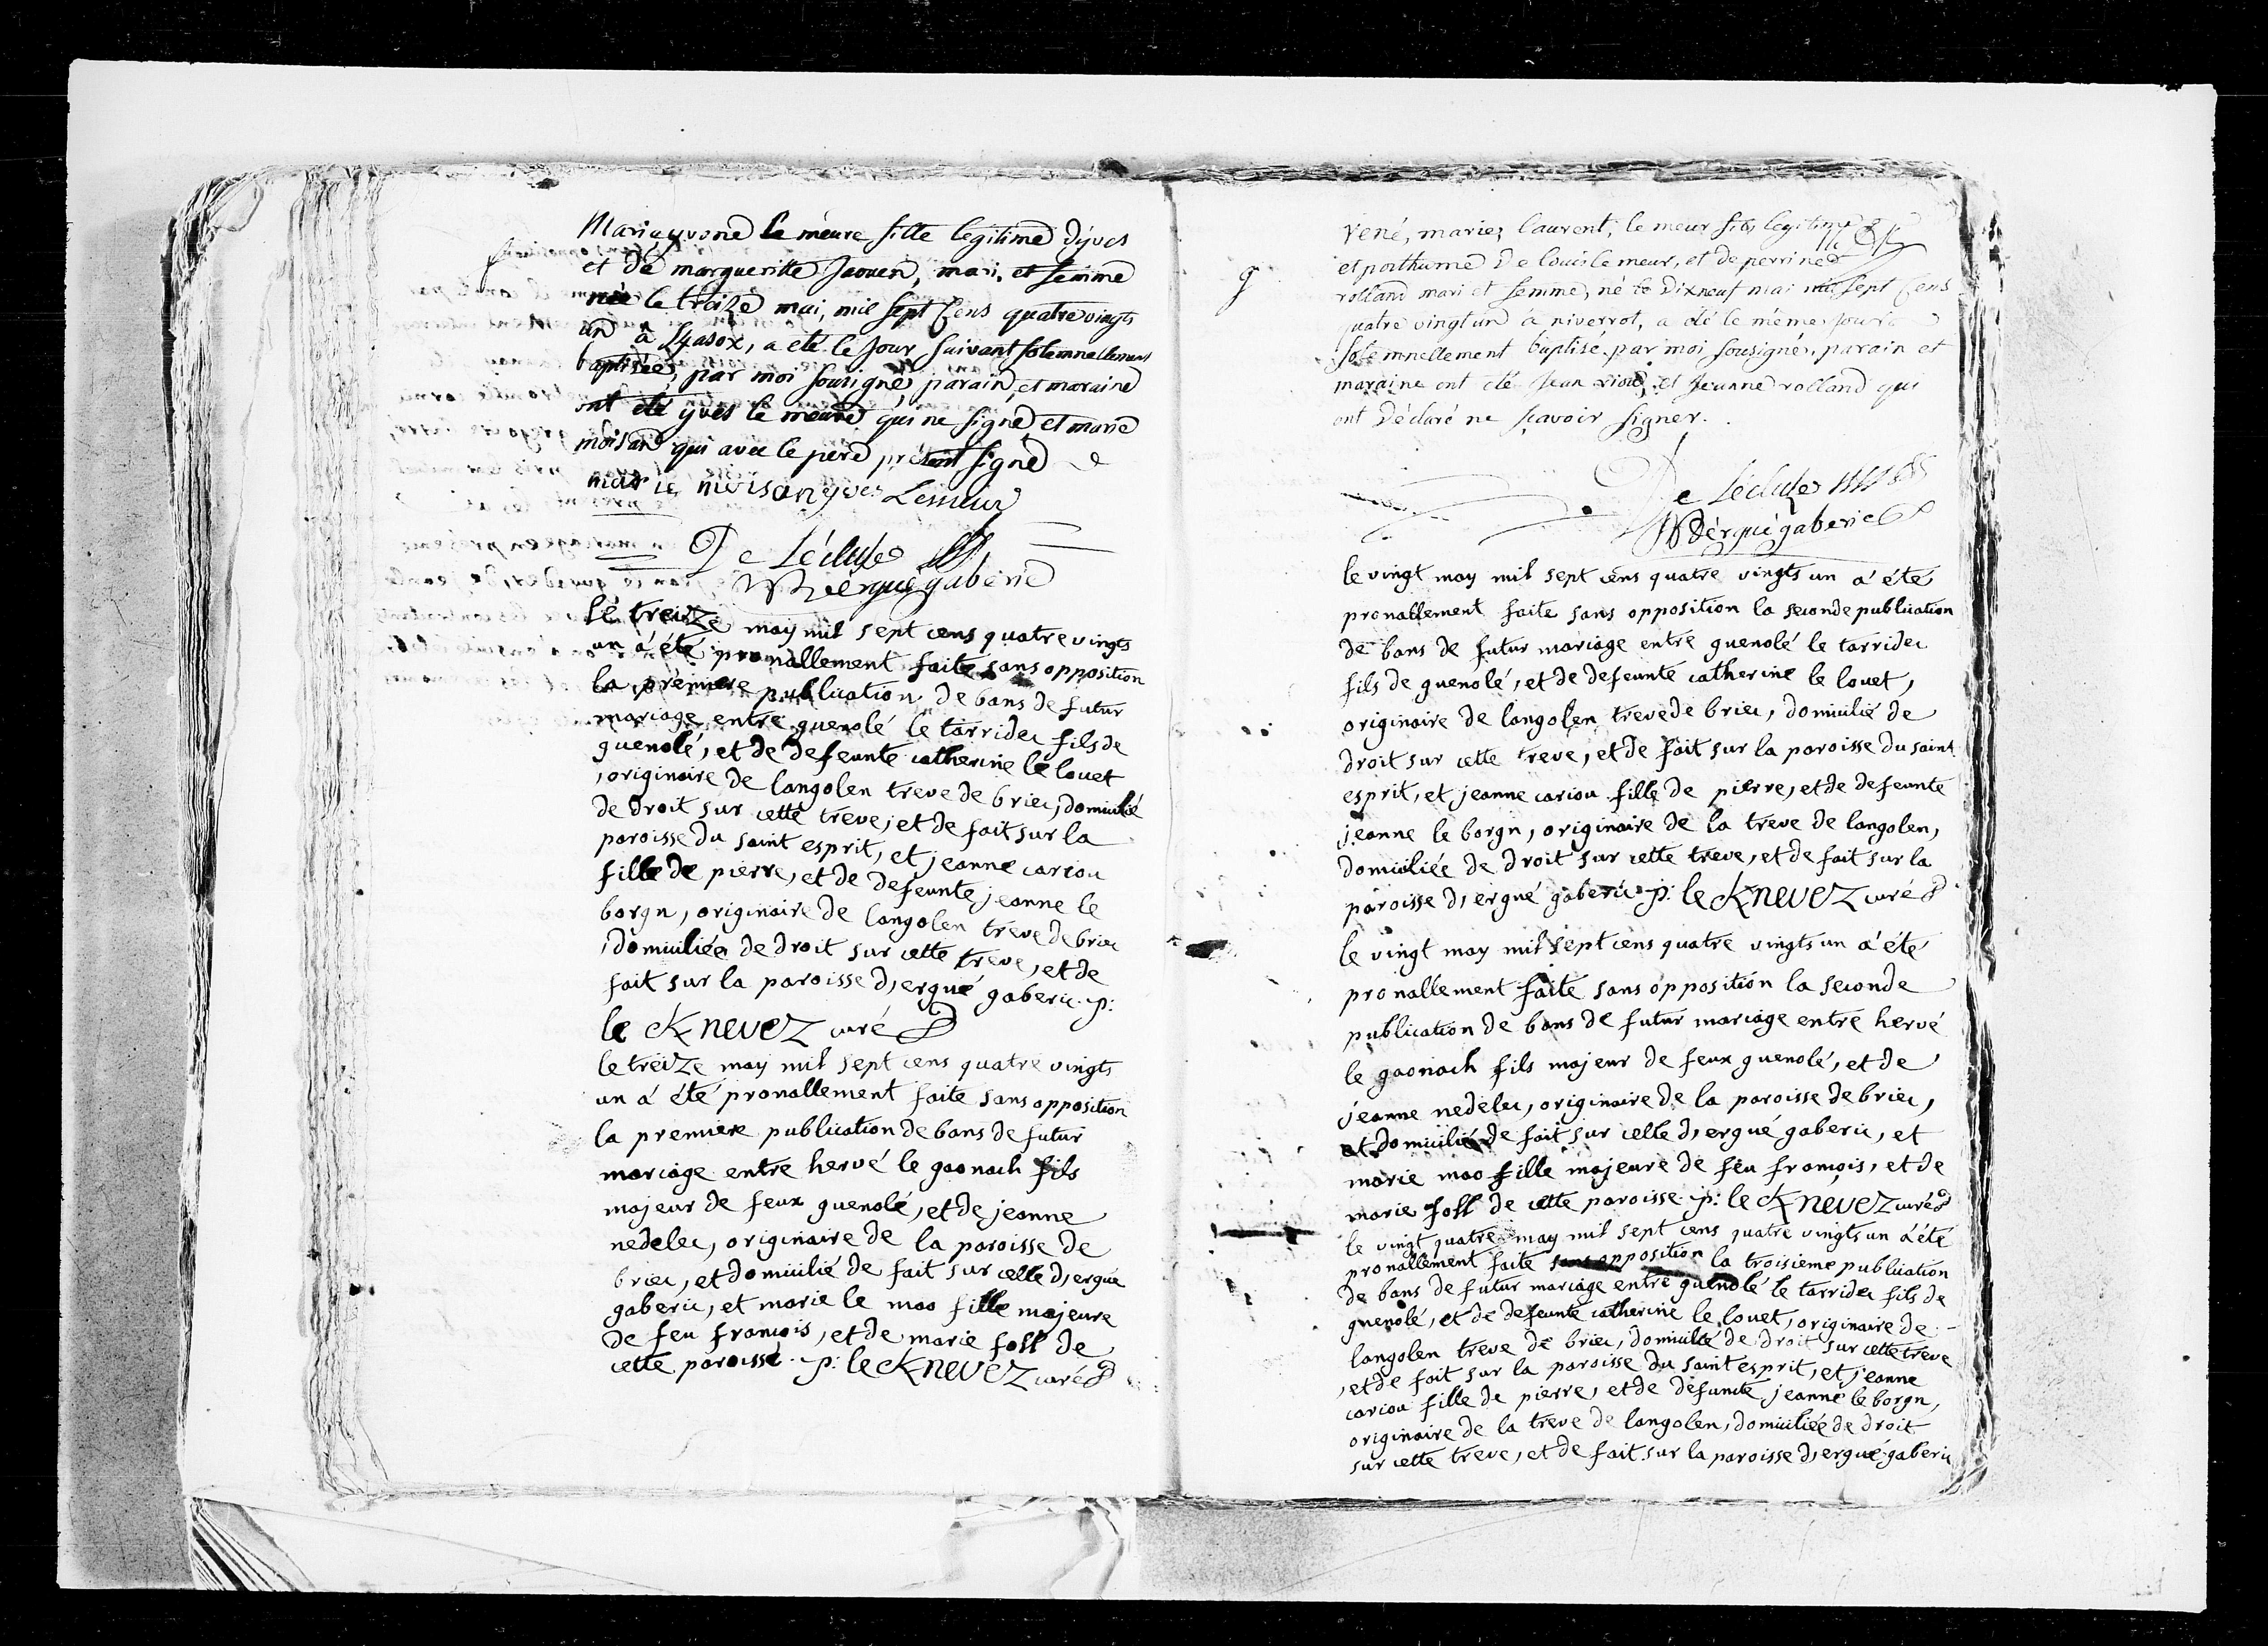 Marie yvone le meure fille legitime d'yves
et de margueritte Jaouen, mari, et femme
née le treize mai, mil sept Cens quatre vingts
un à Lyasox, a eté le jour suivant solemnellement
baptisée, par moi sousigné, parain, et maraine
ont eté yves le meure qui ne signe et marie
moisan qui avec le père présent signe
marie moisan yves Lemeur
De Lécluse
R d'ergué gaberic
le treize may mil sept cens quatre vingts
un a été pronallement faite sans opposition
la première publication de bans de futur
mariage entre guenolé le tarridec fils de
guenolé, et de defeunte catherine le louet
, originaire de langolen treve de briec, domicilié
de droit sur cette treve, et de fait sur la
paroisse du saint esprit, et jeanne cariou
fille de pierre, et de defeunte jeanne le
borgn, originaire de langolen treve de briec
, domiciliée de droit sur cette treve, et de
fait sur la paroisse d'ergué gaberic. p:
le Knevez curé
le treize may mil sept cens quatre vingts
un a été pronallement faite sans opposition
la première publication de bans de futur
mariage entre hervé le gaonach fils
majeur de feux guenolé, et de jeanne
nedelec, originaire de la paroisse de
briec, et domicilié de fait sur celle d'ergué
gaberic, et marie le mao fille majeure
de feu françois, et de marie foll de
cette paroisse. p: le Knevez curé
g
rené, marie, laurent, le meur fils legitime
et posthume de louis le meur, et de perrine
rolland mari et femme, né le dixneuf mai mil sept Cens
quatre vingt un à niverrot, a été le même jour
solemnellement baptise par moi sousigné, parain et
maraine ont eté jean riou, et jeanne rolland qui
ont déclaré ne sçavoir signer.
De Lécluse
R d'érgué gaberic
le vingt may mil sept cens quatre vingts un a été
pronallement faite sans opposition la seconde publication
de bans de futur mariage entre guenolé le tarridec
fils de guenolé, et de defeunte catherine le louet,
originaire de langolen treve de briec, domicilié de
droit sur cette treve, et de fait sur la paroisse du saint
esprit, et jeanne cariou fille de pierre, et de defeunte
jeanne le borgn, originaire de la treve de langolen,
domiciliée de droit sur cette treve, et de fait sur la
paroisse d'ergué gaberic. p: le Knevez curé
le vingt may mil sept cens quatre vingts un a été
pronallement faite sans opposition la seconde
publication de bans de futur mariage entre hervé
le gaonach fils majeur de feux guenolé, et de
jeanne nedelec, originaire de la paroisse de briec,
et domicilié de fait sur celle d'ergué gaberic, et
marie mao fille majeure de feu françois, et de
marie foll de cette paroisse. p: le Knevez curé
le vingt quatre may mil sept cens quatre vingts un a été
pronallement faite sans opposition la troisième publication
de bans de futur mariage entre guenolé le tarridec fils de
guenolé, et de defeunte catherine le louet, originaire de
langolen treve de briec, domicilié de droit sur cette treve
, et de fait sur la paroisse du saint esprit, et jeanne
cariou fille de pierre, et de defuncte jeanne le borgn,
originaire de la treve de langolen, domiciliée de droit
sur cette treve, et de fait sur la paroisse d'ergué gaberic